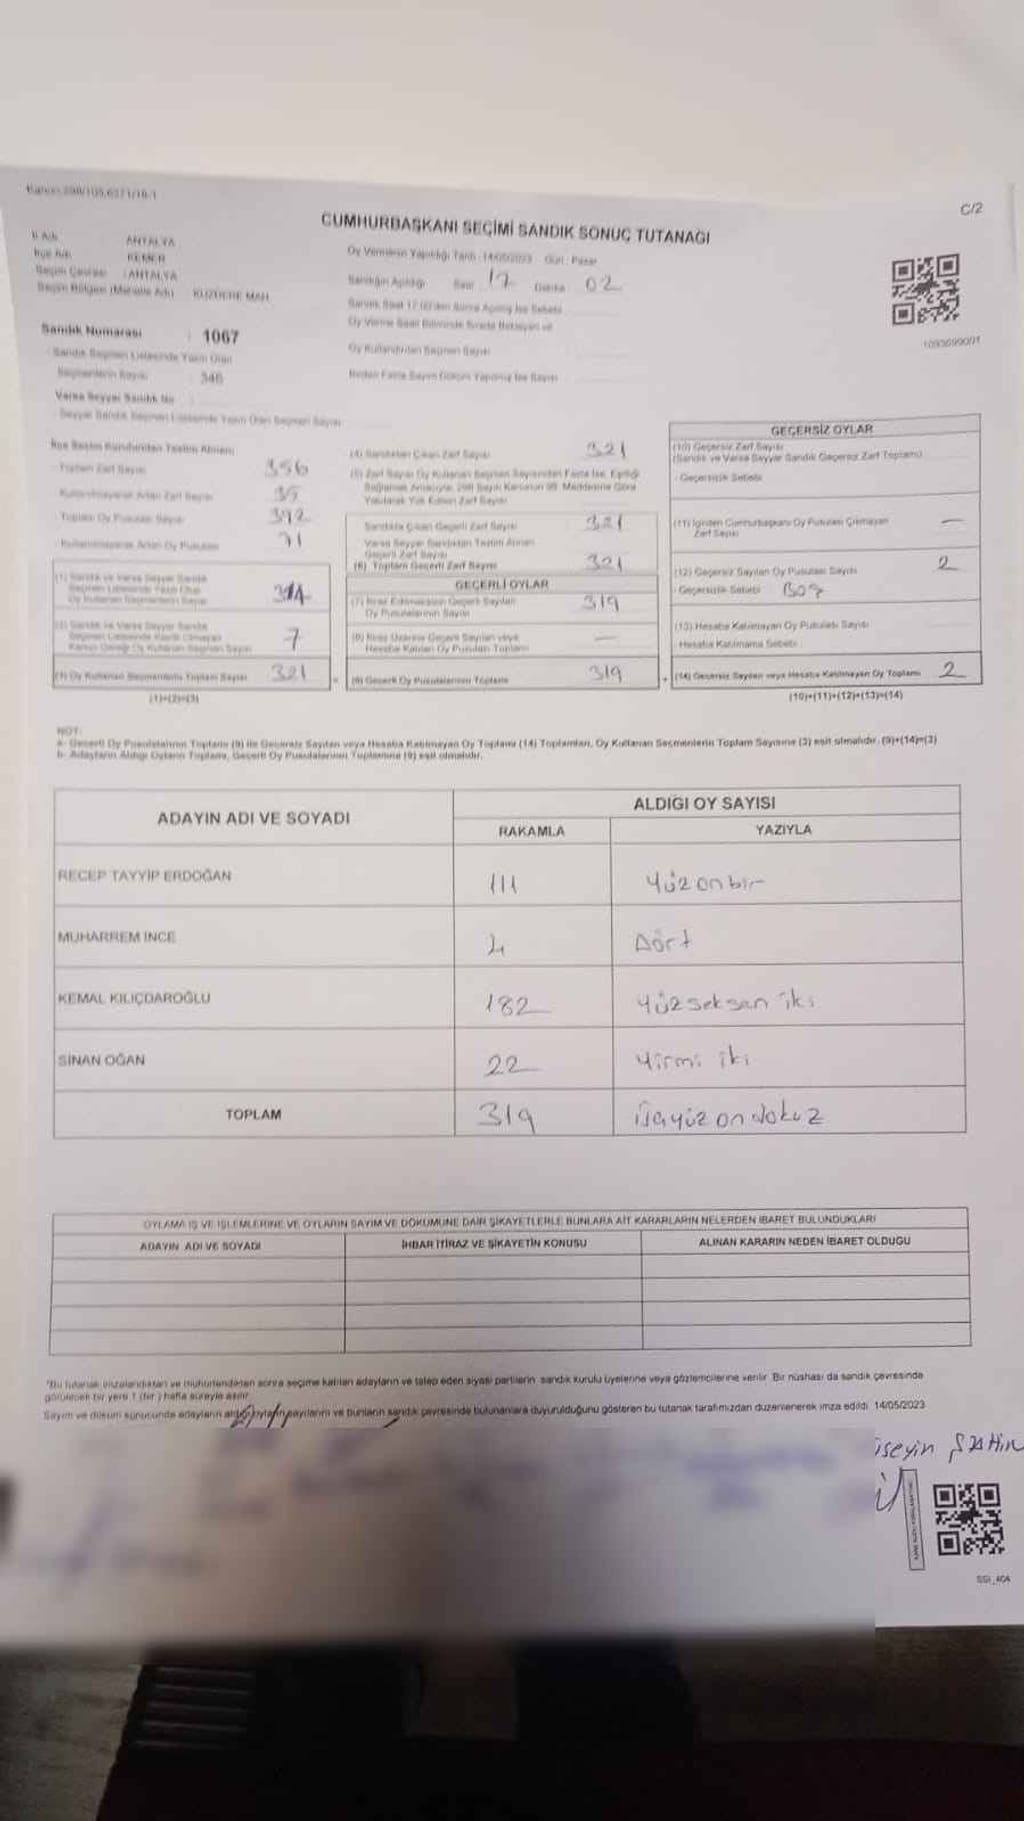 C/2
CUMHURBAŞKANI SEÇİMİ SANDIK SONUÇ TUTANAĞI
İl Adı : ANTALYA
İlçe Adı : KEMER
Seçim Çevresi : ANTALYA
Seçim Bölgesi (Mahalle Adı) : KUZDERE MAH.
Sandık Numarası : 1067
Sandık Seçmen Listesinde Yazılı Olan
Seçmenlerin Sayısı : 346
Varsa Seyyar Sandık No
Seyyar Sandık Seçmen Listesinde Yazılı Olan Seçmen Sayısı
Oy Vermenin Yapıldığı Tarih : 14/05/2023 Gün : Pazar
Sandığın Açıldığı Saat 17 Dakika 02
Oy Kullandırılan Seçmen Sayısı
Birden Fazla Sayım Döküm Yapılmış İse Sayısı
İlçe Seçim Kurulundan Teslim Alınan
Toplam Zarf Sayısı 356
Kullanılmayarak Artan Zarf Sayısı 35
Toplam Oy Pusulası Sayısı 392
Kullanılmayarak Artan Oy Pusulası 71
(1) Sandık ve Varsa Seyyar Sandık
Seçmen Listesinde Yazılı Olup
Oy Kullanan Seçmenlerin Sayısı 314
(2) Sandık ve Varsa Seyyar Sandık
Seçmen Listesinde Kayıtlı Olmayan
Kanun Gereği Oy Kullanan Seçmen Sayısı 7
(3) Oy Kullanan Seçmenlerin Toplam Sayısı 321
(1)+(2)=(3)
(4) Sandıktan Çıkan Zarf Sayısı 321
(5) Zarf Sayısı Oy Kullanan Seçmen Sayısından Fazla İse, Eşitliği
Sağlamak Amacıyla, 298 Sayılı Kanunun 98. Maddesine Göre
Yakılarak Yok Edilen Zarf Sayısı
Sandıkta Çıkan Geçerli Zarf Sayısı 321
Varsa Seyyar Sandıktan Teslim Alınan
Geçerli Zarf Sayısı
(6) Toplam Geçerli Zarf Sayısı 321
GEÇERLİ OYLAR
(7) İtiraz Edilmeksizin Geçerli Sayılan
Oy Pusulalarının Sayısı 319
(8) İtiraz Üzerine Geçerli Sayılan veya
Hesaba Katılan Oy Pusulası Toplamı —
(9) Geçerli Oy Pusulalarının Toplamı 319
GEÇERSİZ OYLAR
(10) Geçersiz Zarf Sayısı
(Sandık ve Varsa Seyyar Sandık Geçersiz Zarf Toplamı)
Geçersizlik Sebebi
(11) İçinden Cumhurbaşkanı Oy Pusulası Çıkmayan
Zarf Sayısı —
(12) Geçersiz Sayılan Oy Pusulası Sayısı 2
Geçersizlik Sebebi Boş
(13) Hesaba Katılmayan Oy Pusulası Sayısı
Hesaba Katılmama Sebebi
(14) Geçersiz Sayılan veya Hesaba Katılmayan Oy Toplamı 2
(10)+(11)+(12)+(13)=(14)
NOT:
a- Geçerli Oy Pusulalarının Toplamı (9) ile Geçersiz Sayılan veya Hesaba Katılmayan Oy Toplamı (14) Toplamları, Oy Kullanan Seçmenlerin Toplam Sayısına (3) eşit olmalıdır. (9)+(14)=(3)
b- Adayların Aldığı Oyların Toplamı, Geçerli Oy Pusulalarının Toplamına (9) eşit olmalıdır.
ADAYIN ADI VE SOYADI
ALDIĞI OY SAYISI
RAKAMLA YAZIYLA
RECEP TAYYİP ERDOĞAN 111 Yüz on bir
MUHARREM İNCE 4 Dört
KEMAL KILIÇDAROĞLU 182 Yüz seksan iki
SİNAN OĞAN 22 Yirmi iki
TOPLAM 319 Üçyüz on dokuz
OYLAMA İŞ VE İŞLEMLERİNE VE OYLARIN SAYIM VE DÖKÜMÜNE DAİR ŞİKAYETLERLE BUNLARA AİT KARARLARIN NELERDEN İBARET BULUNDUKLARI
ADAYIN ADI VE SOYADI İHBAR İTİRAZ VE ŞİKAYETİN KONUSU ALINAN KARARIN NEDEN İBARET OLDUĞU
*Bu tutanak imzalandıktan ve mühürlendikten sonra seçime katılan adayların ve talep eden siyasi partilerin sandık kurulu üyelerine veya gözlemcilerine verilir. Bir nüshası da sandık çevresinde
görülecek bir yere 1 (bir) hafta süreyle asılır.
Sayım ve döküm sonucunda adayların aldığı oyların sayılarını ve bunların sandık çevresinde bulunanlara duyurulduğunu gösteren bu tutanak tarafımızdan düzenlenerek imza edildi. 14/05/2023
üseyin ŞAHİN